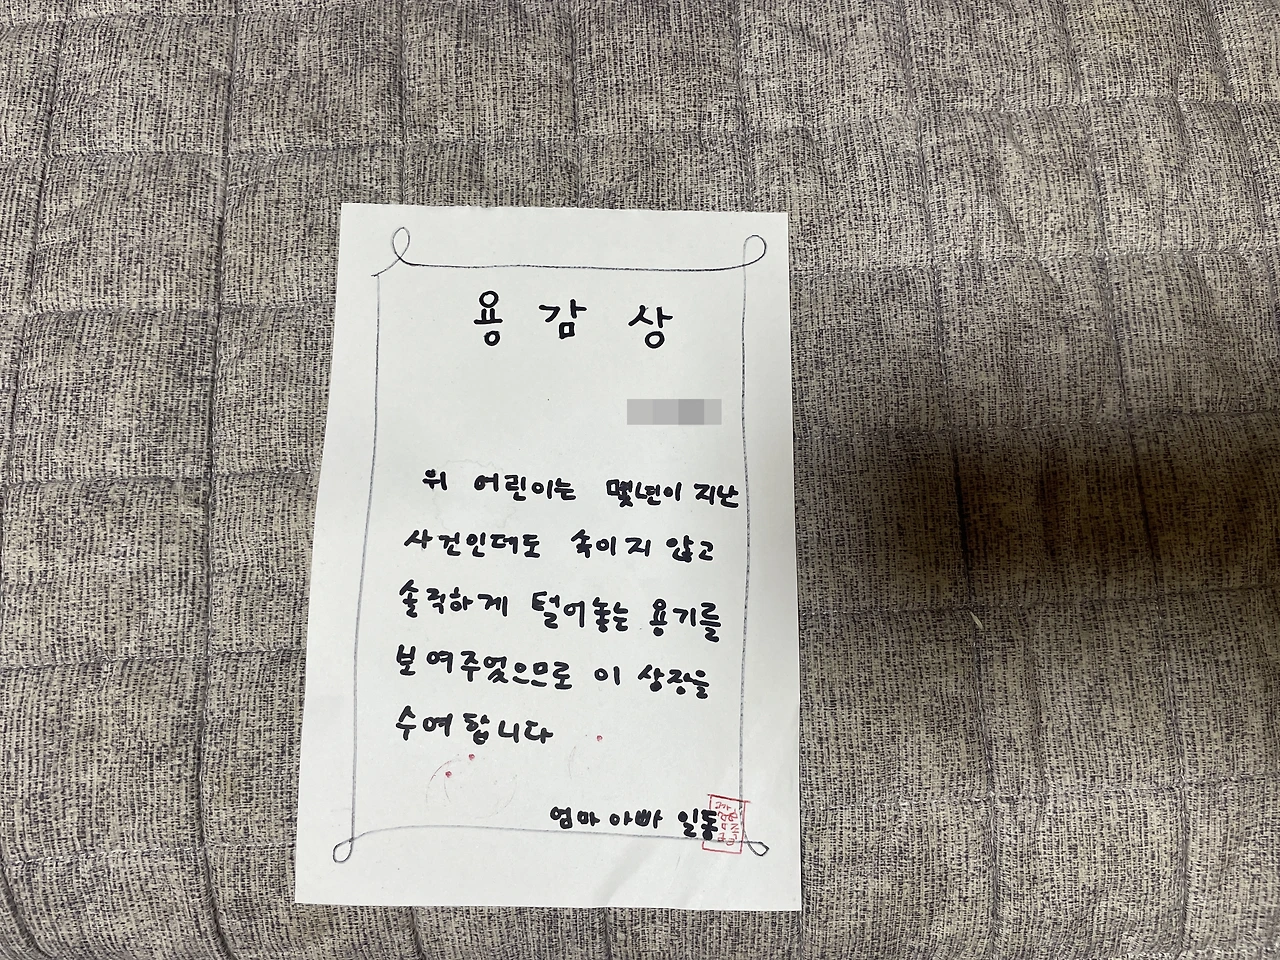 용감상
위 어린이는 몇년이 지난
사건인데도 속이지 않고
솔직하게 털어놓는 용기를
보여주었으므로 이 상장을
수여합니다
엄마아빠 일동